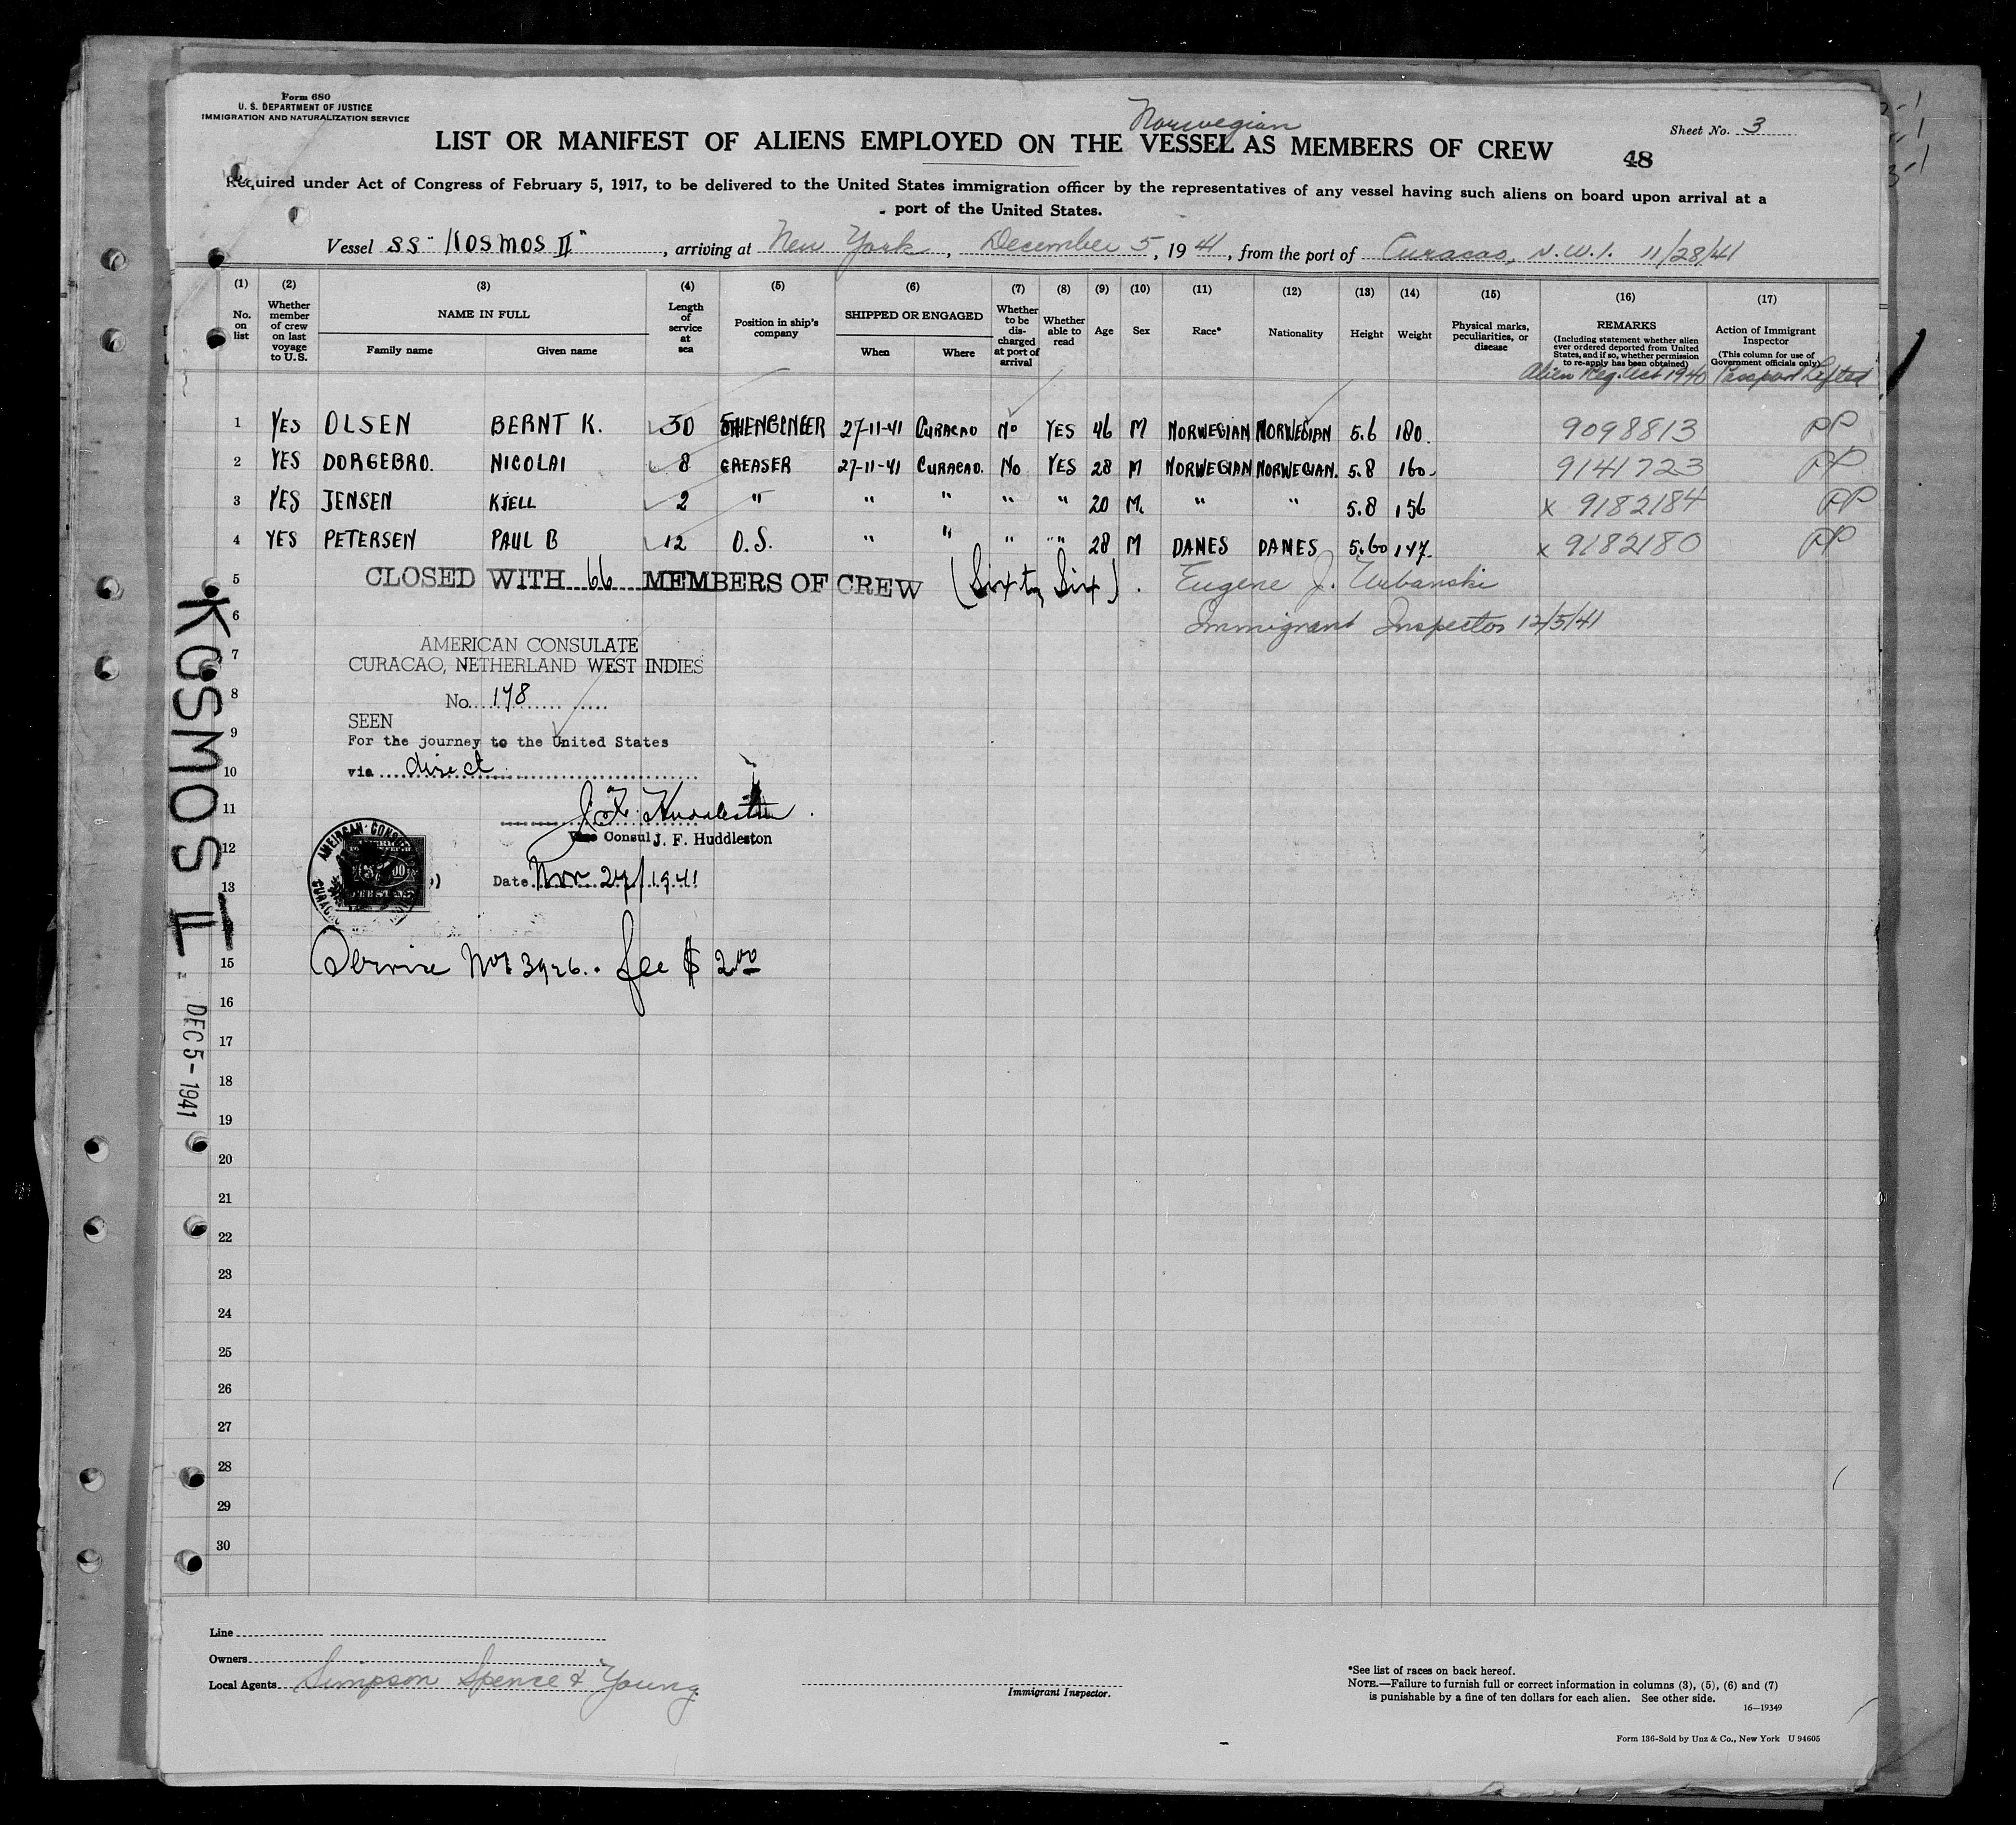 Form 680
U. S. DEPARTMENT OF JUSTICE
IMMIGRATION AND NATURALIZATION SERVICE
Norwegian
Sheet No. 3
LIST OR MANIFEST OF ALIENS EMPLOYED ON THE VESSEL AS MEMBERS OF CREW
48
Required under Act of Congress of February 5, 1917, to be delivered to the United States immigration officer by the representatives of any vessel having such aliens on board upon arrival at a
port of the United States.
Vessel SS "KOSMOS II", arriving at New York, December 5, 1941, from the port of Curacao, N.W.I. 11/28/41
(1) No. on list
(2) Whether member of crew on last voyage to U. S.
(3) NAME IN FULL Family name Given name
(4) Length of service at sea
(5) Position in ship's company
(6) SHIPPED OR ENGAGED When Where
(7) Whether to be discharged at port of arrival
(8) Whether able to read
(9) Age
(10) Sex
(11) Race*
(12) Nationality
(13) Height
(14) Weight
(15) Physical marks, peculiarities, or disease
(16) REMARKS (Including statement whether alien ever ordered deported from United States, and if so, whether permission to re-apply has been obtained)
(17) Action of Immigrant Inspector (This column for use of Government officials only)
Alien Reg. Act 1940 Passport Lifted
1 YES OLSEN BERNT K. 30 5TH ENGINEER 27-11-41 CURACAO NO YES 46 M NORWEGIAN NORWEGIAN 5.6 180. 9098813 PP
2 YES DORGEBRO. NICOLAI 8 GREASER 27-11-41 CURACAO. NO YES 28 M NORWEGIAN NORWEGIAN. 5.8 160. 9141723 PP
3 YES JENSEN KJELL 2 " " " " " 20 M. " " 5.8 156 x 9182184 PP
4 YES PETERSEN PAUL B 12 O.S. " " " " 28 M DANES DANES 5.60 147. x 9182180 PP
5 CLOSED WITH 66 MEMBERS OF CREW (Sixty Six). Eugene J. Urbanski
6 Immigrant Inspector 12/5/41
AMERICAN CONSULATE
7 CURACAO, NETHERLAND WEST INDIES
8 No. 178
SEEN
9 For the journey to the United States
10 via direct
11 J. F. Huddleston
Vice Consul J. F. Huddleston
12
13 Date Nov 27/1941
15 Service No 3926. fee $ 2.00
16
17
18
19
20
21
22
23
24
25
26
27
28
29
30
KOSMOS II
DEC 5 - 1941
AMERICAN CONS
CURACAO
Line
Owners
Local Agents Simpson Spence & Young
Immigrant Inspector.
*See list of races on back hereof.
NOTE.—Failure to furnish full or correct information in columns (3), (5), (6) and (7)
is punishable by a fine of ten dollars for each alien. See other side.
16—19349
Form 136-Sold by Unz & Co., New York U 94605